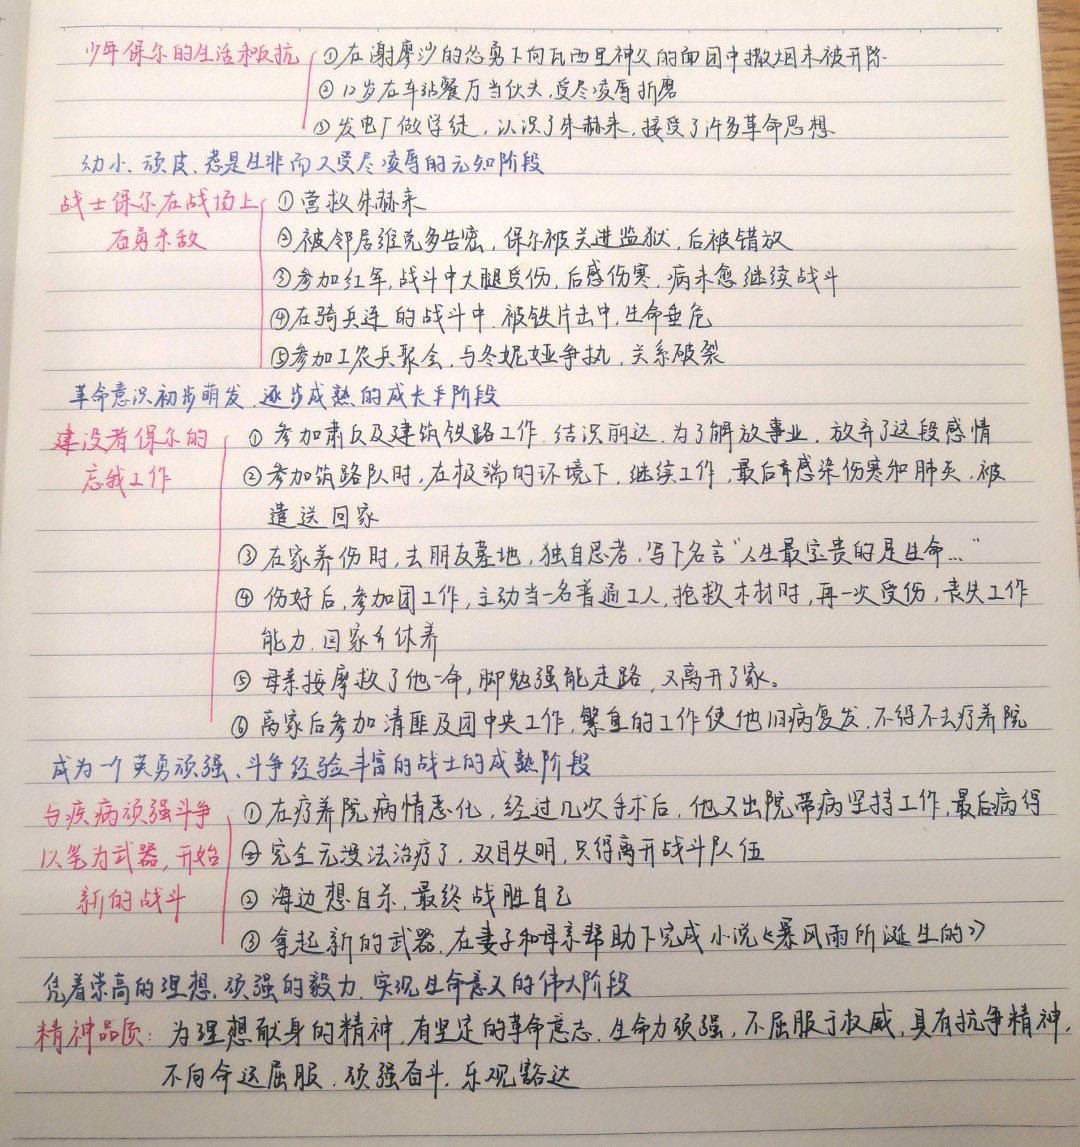 少年保尔的生活和反抗 ①在谢廖沙的怂勇下向瓦西里神父的面团中撒烟末被开除
②12岁在车站餐厅当伙夫,受尽凌辱折磨
③发电厂做学徒,认识了朱赫来,接受了许多革命思想
幼小、顽皮、惹是生非而又受尽凌辱的无知阶段
战士保尔在战场上 ①营救朱赫来
奋勇杀敌 ②被邻居维克多告密,保尔被关进监狱,后被错放
③参加红军,战斗中大腿受伤,后感伤寒,病未愈继续战斗
④在骑兵连的战斗中,被铁片击中,生命垂危
⑤参加工农兵聚会,与冬妮娅争执,关系破裂
革命意识初步萌发,逐步成熟的成长阶段
建设者保尔的 ①参加肃反及建筑铁路工作,结识丽达,为了解放事业,放弃了这段感情
忘我工作 ②参加筑路队时,在极端的环境下,继续工作,最后感染伤寒和肺炎,被
遣送回家
③在家养伤时,去朋友墓地,独自思考,写下名言"人生最宝贵的是生命…"
④伤好后,参加团工作,主动当一名普通工人,抢救木材时,再一次受伤,丧失工作
能力,回家乡休养
⑤母亲按摩救了他一命,脚勉强能走路,又离开了家。
⑥离家后参加清匪及团中央工作,繁重的工作使他旧病复发,不得不去疗养院
成为一个英勇顽强、斗争经验丰富的战士的成熟阶段
与疾病顽强斗争 ①在疗养院病情恶化,经过几次手术后,他又出院带病坚持工作,最后病得
以笔为武器,开始 完全无没法治疗了,双目失明,只得离开战斗队伍
新的战斗 ②海边想自杀,最终战胜自己
③拿起新的武器,在妻子和母亲帮助下完成小说《暴风雨所诞生的》
凭着崇高的理想,顽强的毅力,实现生命意义的伟大阶段
精神品质:为理想献身的精神,有坚定的革命意志,生命力顽强,不屈服于权威,具有抗争精神,
不向命运屈服,顽强奋斗,乐观豁达